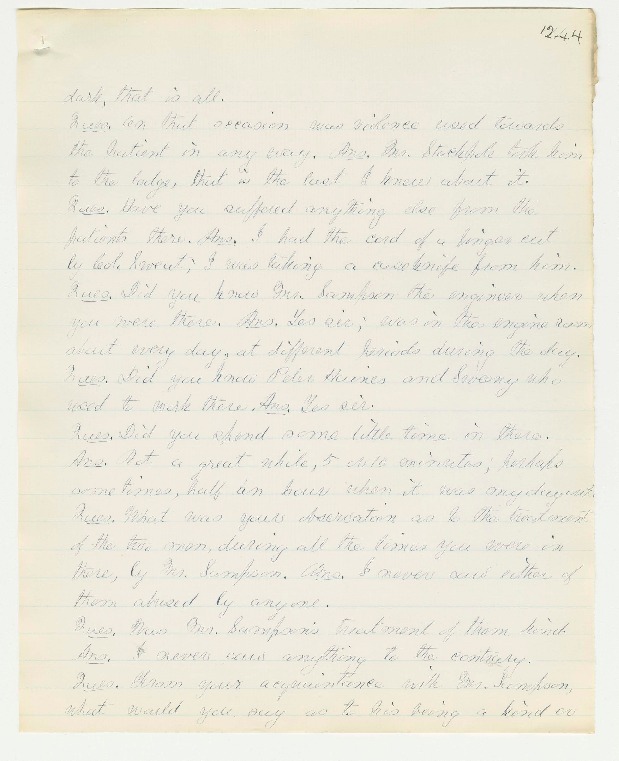 1244
dark, that is all.
Ques. On that occasion was violence used towards
the patient in any way. Ans. Mr. Stockdale took him
to the lodge, that is the last I knew about it.
Ques. Have you suffered anything else from the
patients there. Ans. I had the cord of a finger cut
by Col. ; I was taking a caseknife from him.
Ques. Did you know Mr. Sampson the engineer when
you were there. Ans. Yes sir; was in the engine room
about every day, at different periods during the day.
Ques. Did you know Peter and who
used to work there. Ans. Yes sir.
Ques. Did you spend some little time in there.
Ans. Not a great while, 5 or 10 minutes; perhaps
sometimes, half an hour when it was my day out.
Ques. What was your observation as to the treatment
of the two men, during all the times you were in
there, by Mr. Sampson. Ans. I never saw either of
them abused by anyone.
Ques. Was Mr. Sampson's treatment of them kind
Ans. I never saw anything to the contrary.
Ques. From your acquaintance with Mr. Sampson,
what would you say as to his being a kind or